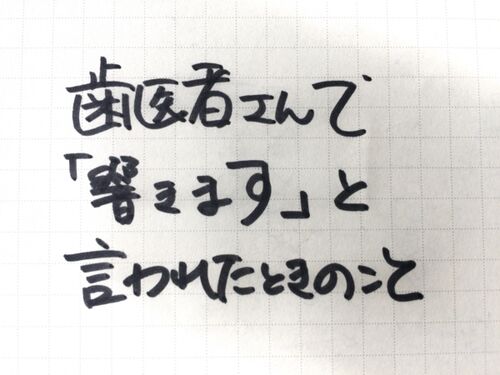 歯医者さんで
「響きます」と
言われたときのこと